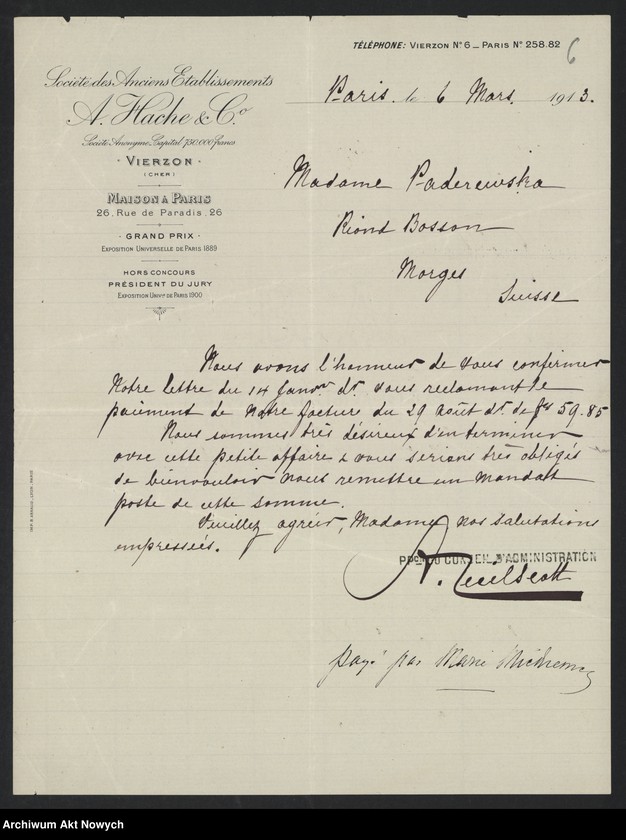 TÉLÉPHONE: VIERZON Nº 6 _ PARIS Nº 258.82
6
Société des Anciens Etablissements
A. Hache & Cº
Société Anonyme, Capital 750.000 francs
VIERZON
(CHER)
MAISON À PARIS
26, Rue de Paradis, 26
GRAND PRIX
EXPOSITION UNIVERSELLE DE PARIS 1889
HORS CONCOURS
PRÉSIDENT DU JURY
EXPOSITION UNIVlle DE PARIS 1900
Paris, le 6 Mars, 1913.
Madame Paderewska
Riond Bosson
Morges
Suisse
Nous avons l'honneur de vous confirmer
Notre lettre du 14 Janvr dr vous réclamant le
paiement de Notre facture du 29 août dr de frs 59.85
Nous sommes très désireux d'en terminer
avec cette petite affaire & vous serions très obligés
de bien vouloir nous remettre un mandat
poste de cette somme.
Veuillez agréer, Madame, nos salutations
empressées.
DU CONSEIL D'ADMINISTRATION
payé par Marie
IMP. B. ARNAUD, LYON-PARIS
Archiwum Akt Nowych